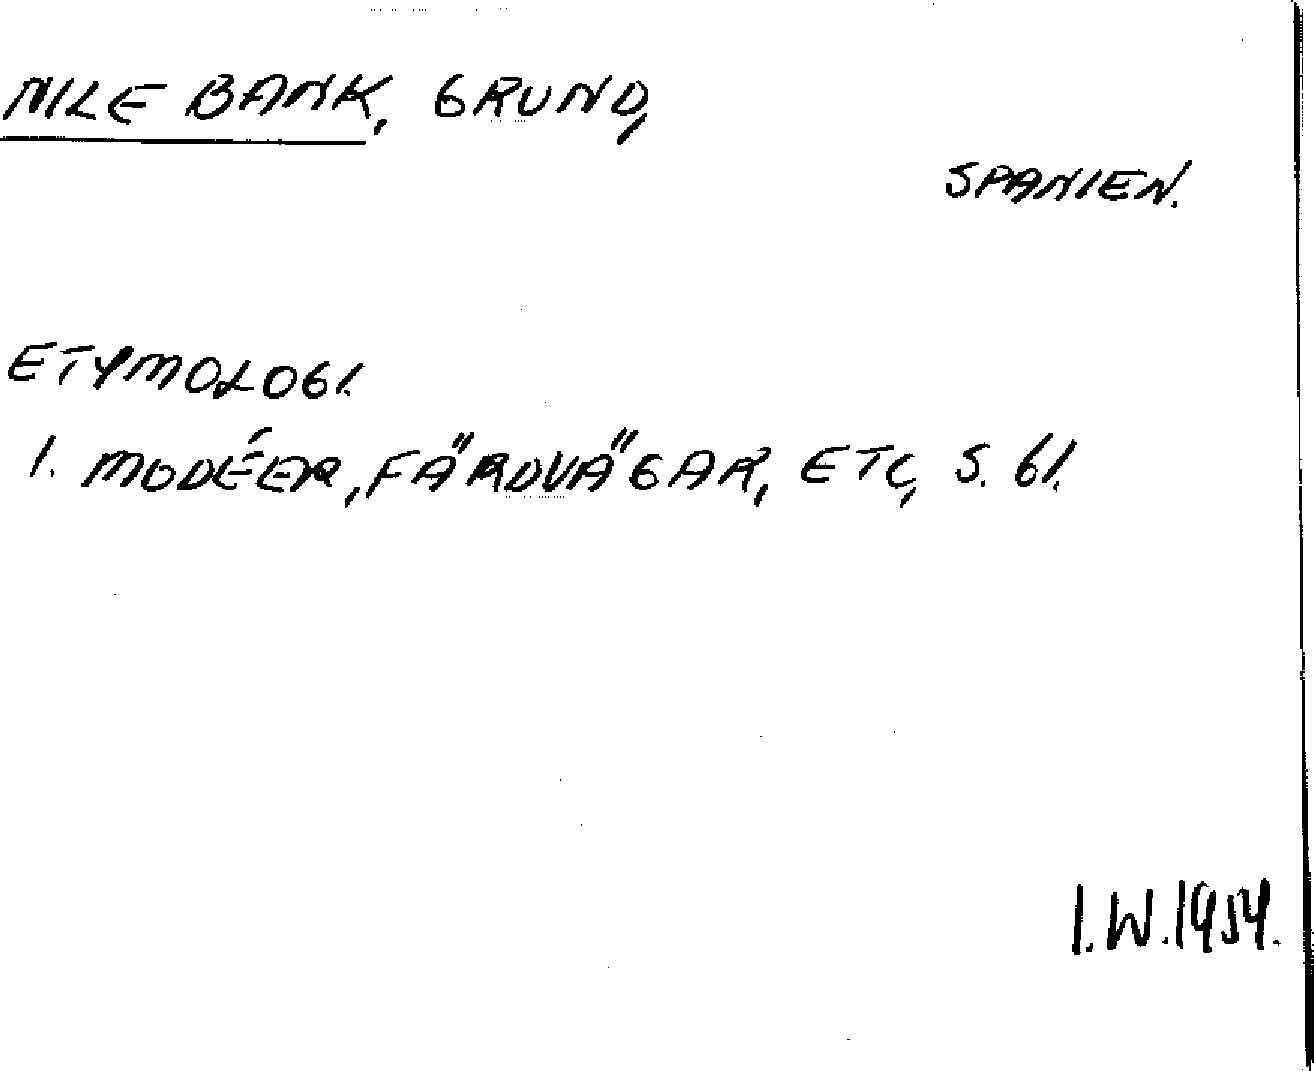 NILE BANK, GRUND,
SPANIEN.
ETYMOLOGI.
1. MODÉER, FÄRDVÄGAR, ETC, S. 61.
I.W.1954.